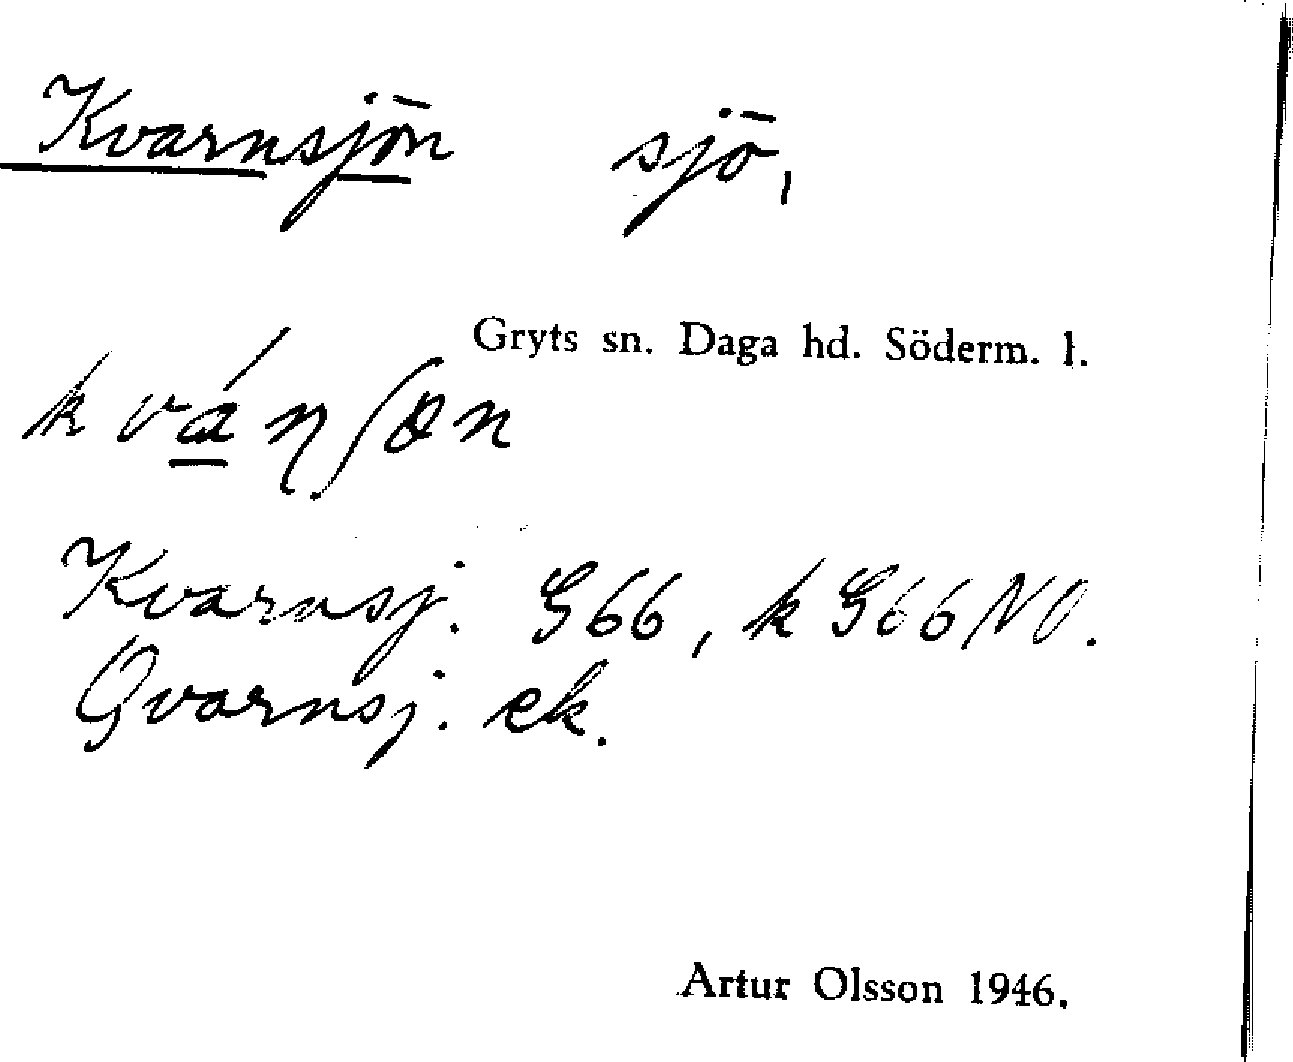 Kvarnsjön sjö,
Gryts sn. Daga hd. Söderm. l.
kvánʃøn
Kvarnsj. G66, k G66NO.
Qvarnsj. ek.
Artur Olsson 1946.